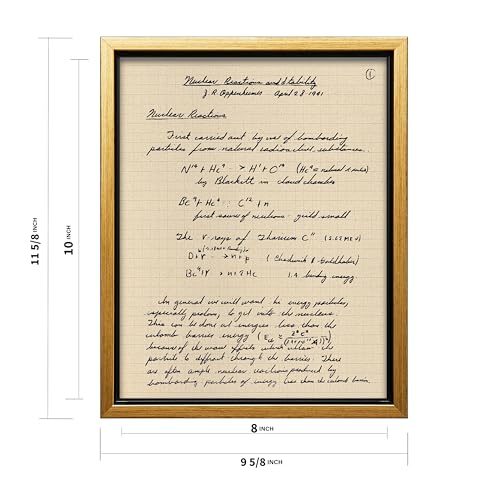 ①
Nuclear Reactions and Stability
J. R. Oppenheimer April 28 1941
Nuclear Reactions
First carried out by use of bombarding
particles from natural radioactive substances.
N¹⁴ + He⁴ → H¹ + O¹⁷ (He⁴ = natural α rules)
by Blackett in cloud chamber
Be⁹ + He⁴ : C¹² 1n
first source of neutrons - yield small
The γ rays of Thorium C" (2.62 MEV)
D + γ → n + p (Chadwick & Goldhaber)
Be⁹ + γ → n + 2 He 1.4 binding energy
In general we will want hi energy particles,
especially protons, to get into the nucleus.
This can be done at energies less than the
coulomb barrier energy
because of the wave effects which allow the
particle to diffract through the barrier. There
are often ample nuclear reactions produced by
bombarding particles of energy less than the coulomb barrier.
11 5/8 INCH
10 INCH
8 INCH
9 5/8 INCH